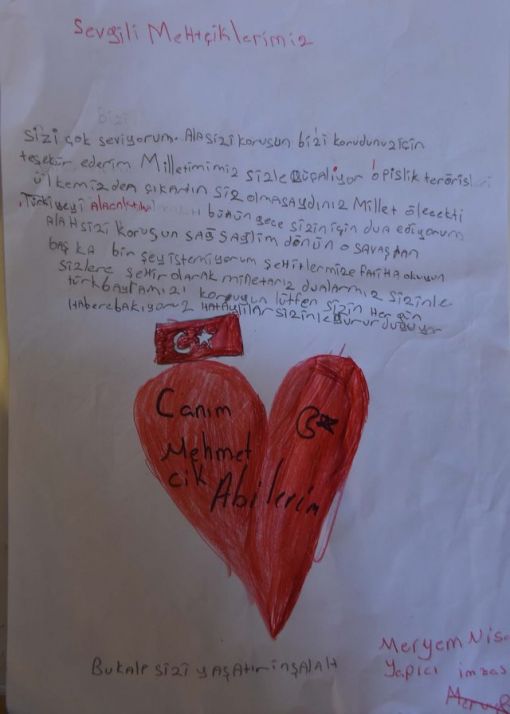 Sevgili Mehtçiklerimiz
Sizi çok seviyorum. Alasizi koruşun bizi korudunuz için
teşekür ederim Milletimimiz sizle güçaliyor o pislik teröris
ülkemizden çıkartın siz olmasaydınız Millet ölecekti
Türkiyeyi Alacaktı bütün gece sizin için dua ediyorum
Alah sizi koruşun sağ sağlim dönün o savaştan
başka bir şey istemiyorum şehitlermize fatiha okuyun
sizlere şehir olarak minetarız dualarmız sizinle
türk bayramızı koruyun lütfen sizin her gün
habere bakıyoruz Hataylılar sizinle gurur duyuyor
Canım
Mehmet
cik Abilerim
Bu kalp sizi yaşatır inşalalh
Meryem Nis
Yapıcı imzas